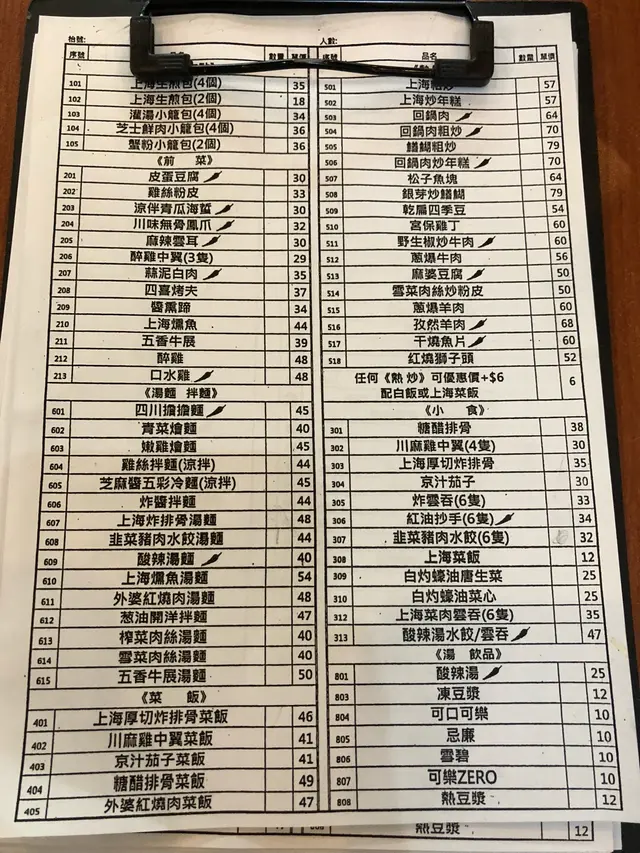 枱號:
人數:
序號 數量 單價
101 上海生煎包(4個) 35
102 上海生煎包(2個) 18
103 灌湯小籠包(4個) 34
104 芝士鮮肉小籠包(4個) 36
105 蟹粉小籠包(2個) 36
《前 菜》
201 皮蛋豆腐 30
202 雞絲粉皮 33
203 涼伴青瓜海蜇 30
204 川味無骨鳳爪 32
205 麻辣雲耳 30
206 醉雞中翼(3隻) 29
207 蒜泥白肉 35
208 四喜烤夫 37
209 醬熏蹄 34
210 上海燻魚 44
211 五香牛展 39
212 醉雞 48
213 口水雞 48
《湯麵 拌麵》
601 四川擔擔麵 45
602 青菜燴麵 40
603 嫩雞燴麵 45
604 雞絲拌麵(涼拌) 44
605 芝麻醬五彩冷麵(涼拌) 45
606 炸醬拌麵 44
607 上海炸排骨湯麵 48
608 韭菜豬肉水餃湯麵 44
609 酸辣湯麵 40
610 上海燻魚湯麵 54
611 外婆紅燒肉湯麵 48
612 葱油開洋拌麵 47
613 榨菜肉絲湯麵 40
614 雪菜肉絲湯麵 40
615 五香牛展湯麵 50
《菜 飯》
401 上海厚切炸排骨菜飯 46
402 川麻雞中翼菜飯 41
403 京汁茄子菜飯 41
404 糖醋排骨菜飯 49
405 外婆紅燒肉菜飯 47
序號 品名 數量 單價
501 上海粗炒 57
502 上海炒年糕 57
503 回鍋肉 64
504 回鍋肉粗炒 70
505 鱔糊粗炒 79
506 回鍋肉炒年糕 70
507 松子魚塊 64
508 銀芽炒鱔糊 79
509 乾扁四季豆 54
510 宮保雞丁 60
511 野生椒炒牛肉 60
512 蔥爆牛肉 56
513 麻婆豆腐 50
514 雪菜肉絲炒粉皮 50
515 蔥爆羊肉 60
516 孜然羊肉 68
517 干燒魚片 60
518 紅燒獅子頭 52
任何《熱 炒》可優惠價+$6 6
配白飯或上海菜飯
《小 食》
301 糖醋排骨 38
302 川麻雞中翼(4隻) 30
303 上海厚切炸排骨 35
304 京汁茄子 30
305 炸雲吞(6隻) 33
306 紅油抄手(6隻) 34
307 韭菜豬肉水餃(6隻) 32
308 上海菜飯 12
309 白灼蠔油唐生菜 25
310 白灼蠔油菜心 25
312 上海菜肉雲吞(6隻) 35
313 酸辣湯水餃/雲吞 47
《湯 飲品》
801 酸辣湯 25
803 凍豆漿 12
804 可口可樂 10
805 忌廉 10
806 雪碧 10
807 可樂ZERO 10
808 熱豆漿 12
熱豆漿 12